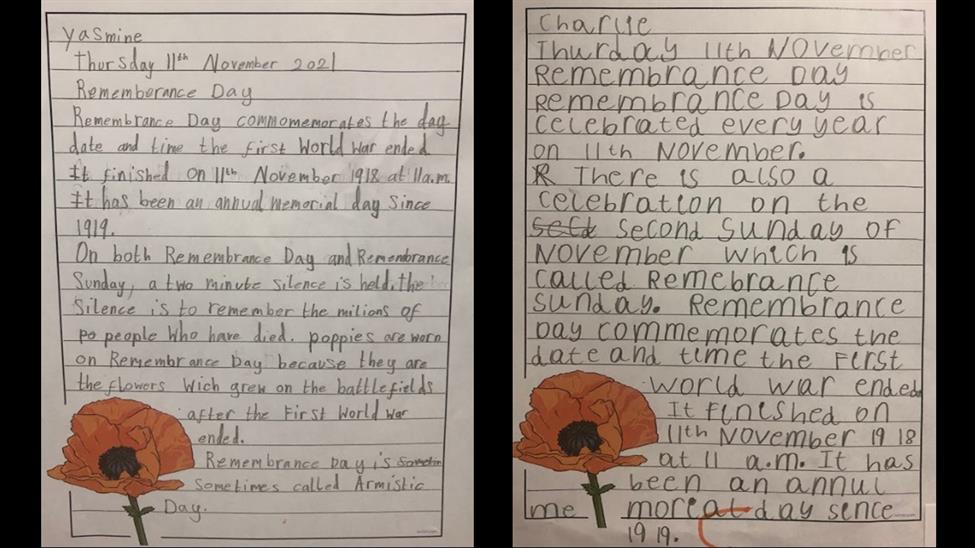 Yasmine
Thursday 11th November 2021
Rememberance Day
Remembrance Day commomemorates the day
date and time the first World War ended
It finished on 11th November 1918 at 11a.m.
It has been an annual memorial day since
1919.
On both Remembrance Day and Remembrance
Sunday, a two minute silence is held. the
Silence is to remember the milions of
po people who have died. poppies are worn
on Remembrance Day because they are
the flowers wich grew on the battlefields
after the First World War
ended.
Remembrance Day is Sometim
Sometimes called Armistic
Day.
Charlie
Thurday 11th NOVember
Remembrance Day
Remembrance Day is
celebrated every year
on 11th November.
R There is also a
celebration on the
second Sunday of
November which is
called Remebrance
Sunday. Remembrance
Day commemorates the
date and time the First
world war ended
It finished on
11th November 1918
at 11 a.m. It has
been an annul
me moreat day sence
1919.